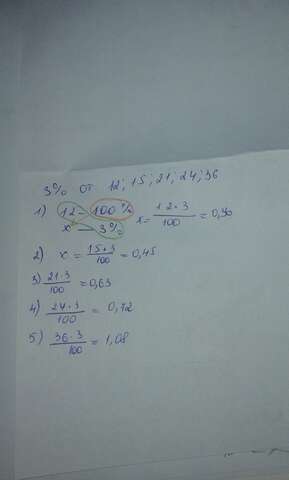 3% от 12; 15; 21; 24; 36
1) 12 – 100% x = 12·3/100 = 0,36
x – 3%
2) x = 15·3/100 = 0,45
3) 21·3/100 = 0,63
4) 24·3/100 = 0,72
5) 36·3/100 = 1,08